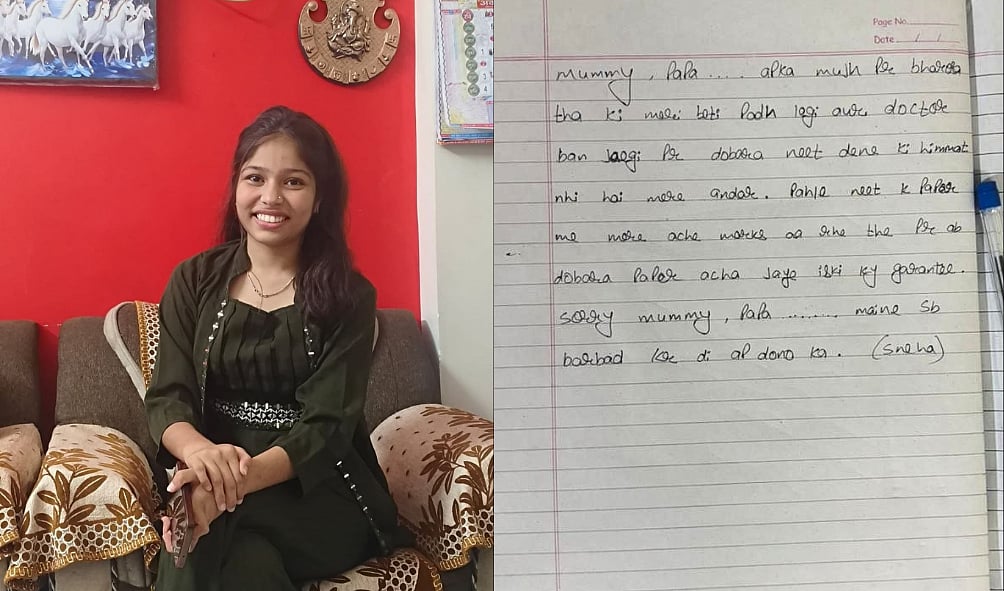 Page No.
Date / /
Mummy, Papa .... apka mujh Pr bharosa
tha ki meri beti Padh legi aur doctor
ban jaegi Pr dobara neet dene ki himmat
nhi hai mere andar. Pahle neet k Paper
me mere ache marks aa rhe the Pr ab
dobara Paper acha jaye iski ky garantee.
sorry mummy, Papa ......... maine sb
barbad kr di ap dono ka. (Sneha)